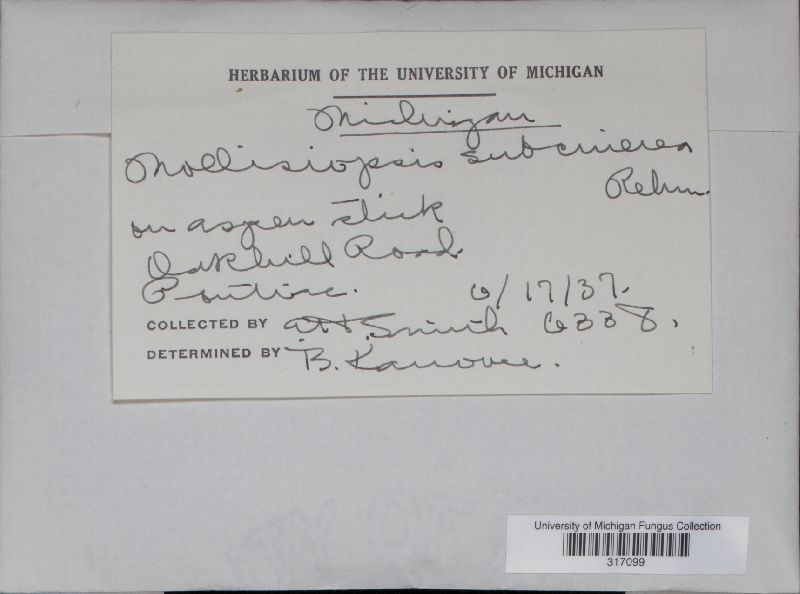 HERBARIUM OF THE UNIVERSITY OF MICHIGAN
Michigan
Mollisiopsis subcinerea
Rehm.
on aspen stick
Oakhill Road
Pontiac. 6/17/37.
COLLECTED BY A.H. Smith 6338.
DETERMINED BY B. Kanouse.
University of Michigan Fungus Collection
317099